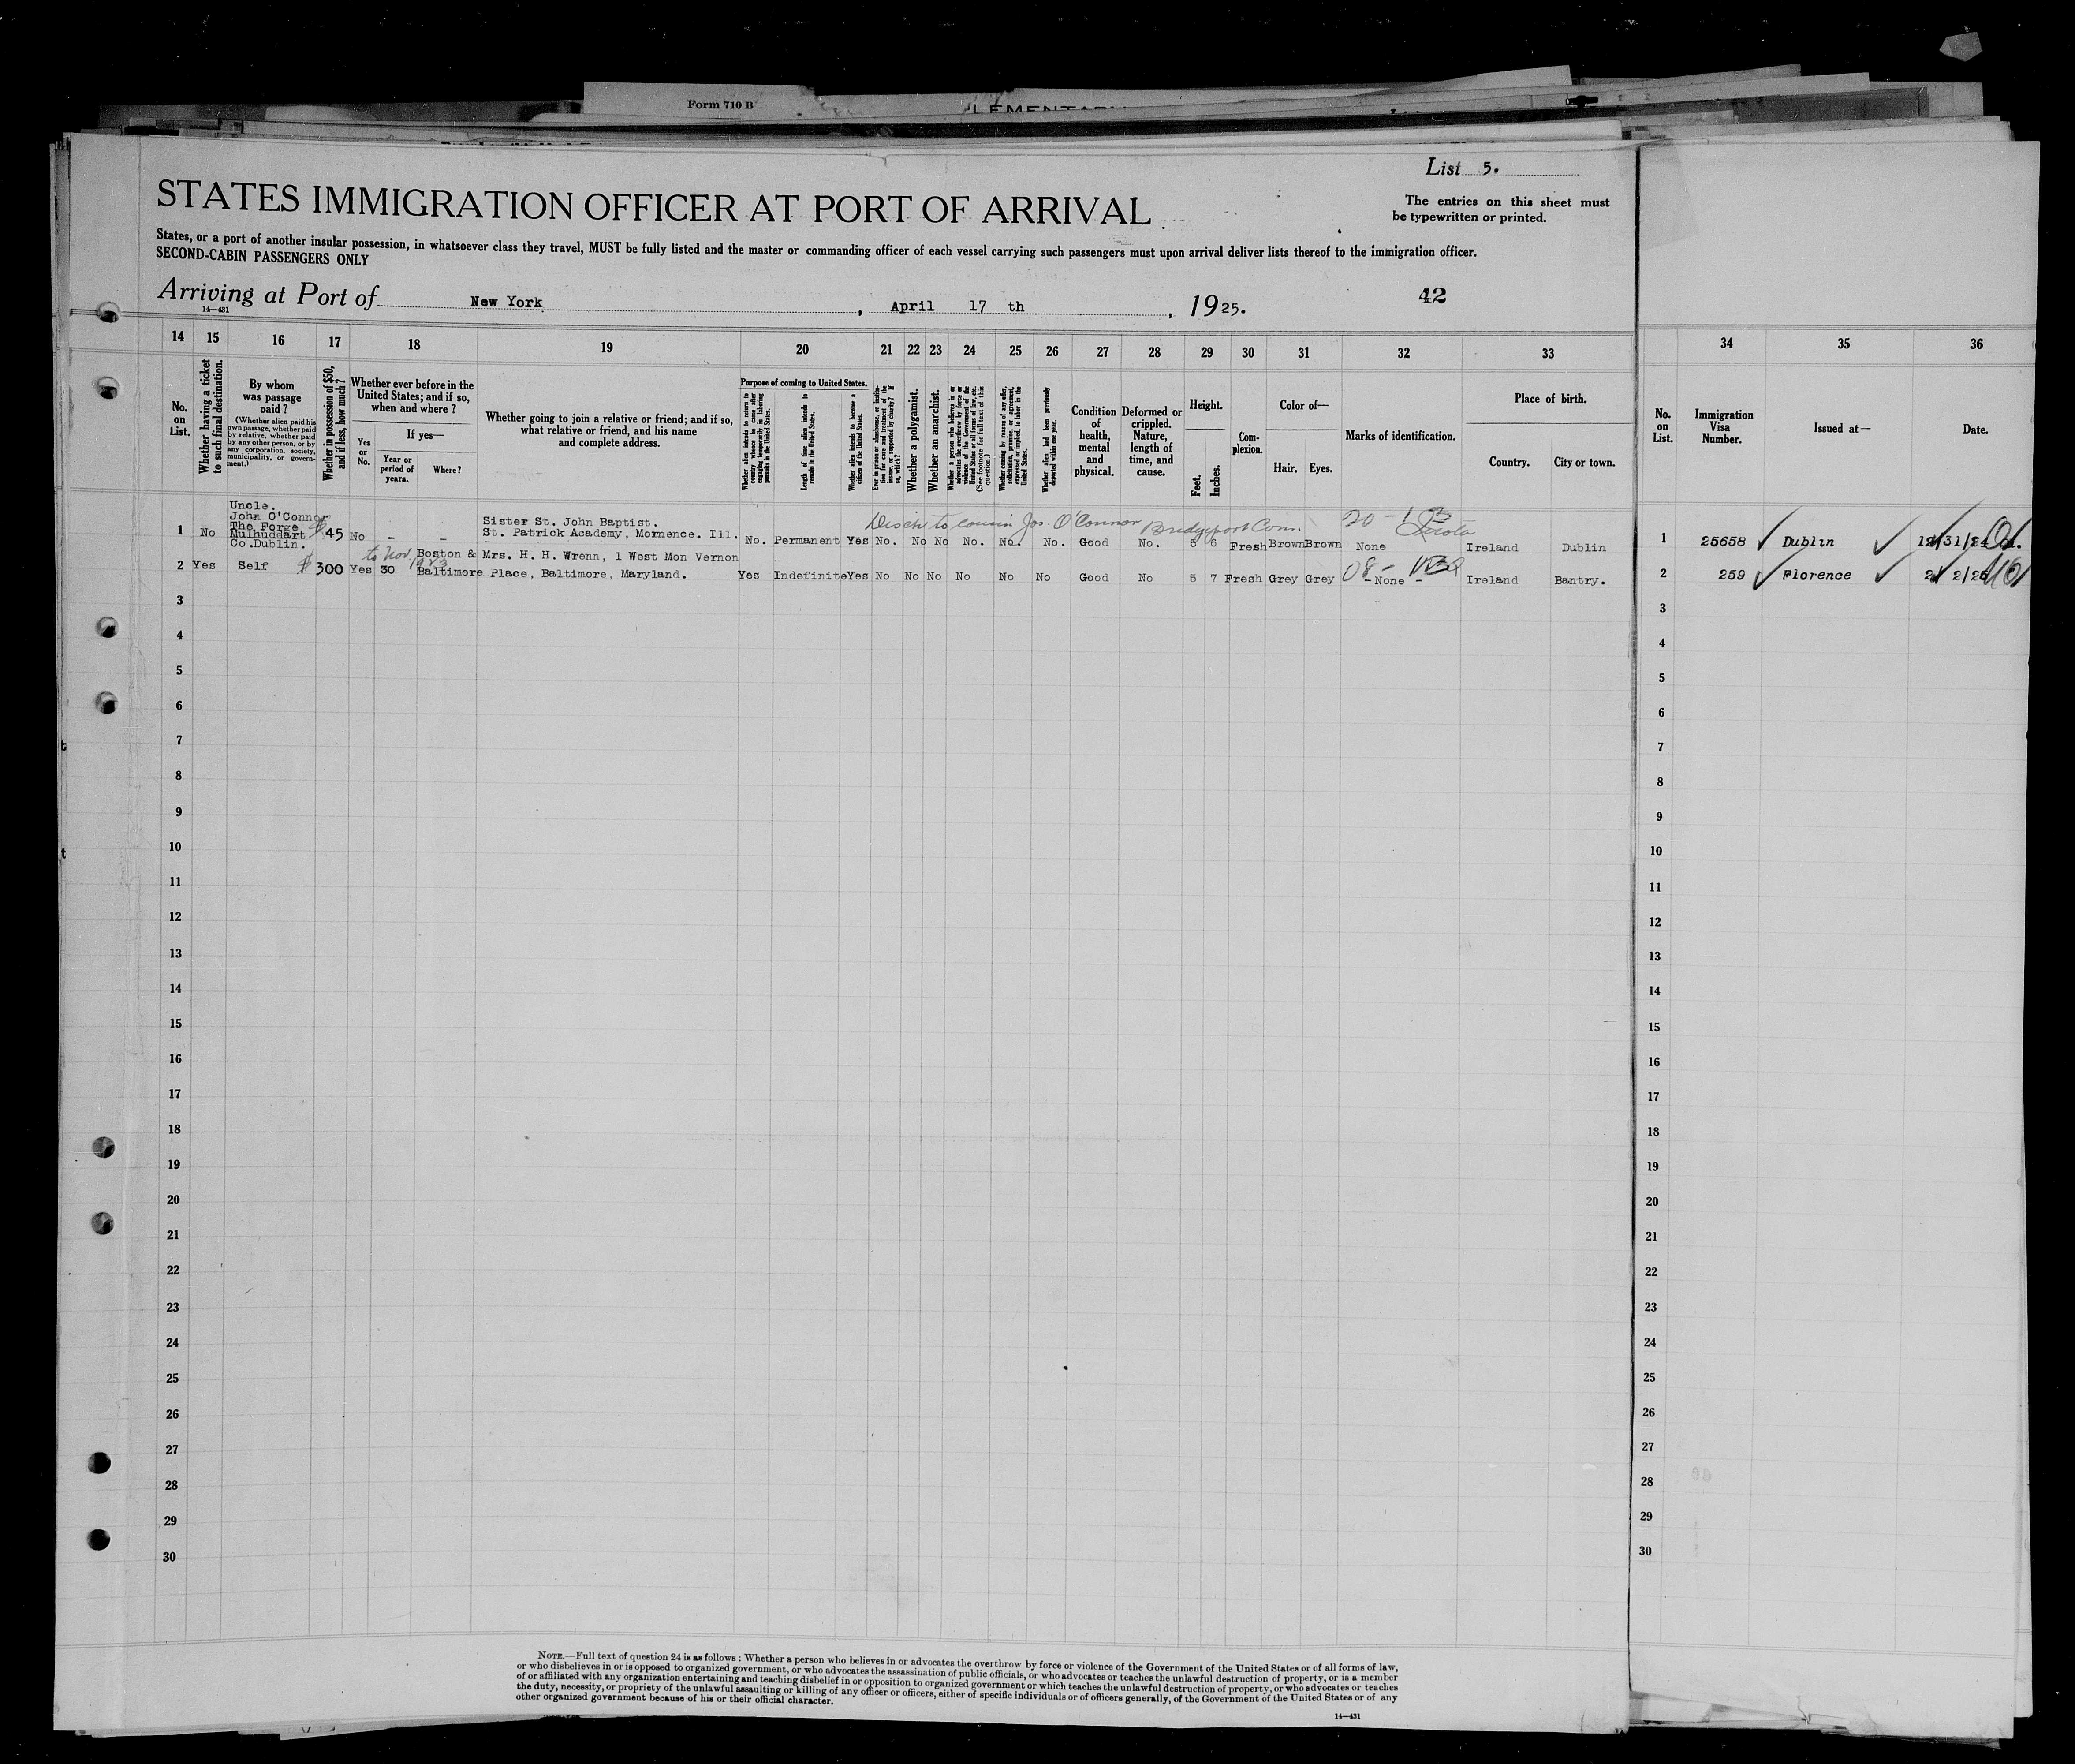 Form 710 B
List 5.
STATES IMMIGRATION OFFICER AT PORT OF ARRIVAL
The entries on this sheet must
be typewritten or printed.
States, or a port of another insular possession, in whatsoever class they travel, MUST be fully listed and the master or commanding officer of each vessel carrying such passengers must upon arrival deliver lists thereof to the immigration officer.
SECOND-CABIN PASSENGERS ONLY
Arriving at Port of New York, April 17 th, 1925.
42
14—431
14 15 16 17 18 19 20 21 22 23 24 25 26 27 28 29 30 31 32 33 34 35 36
No. on List.
Whether having a ticket to such final destination.
By whom was passage paid?
(Whether alien paid his own passage, whether paid by relative, whether paid by any other person, or by any corporation, society, municipality, or government.)
Whether in possession of $50, and if less, how much?
Whether ever before in the United States; and if so, when and where?
Yes or No.
If yes—
Year or period of years.
Where?
Whether going to join a relative or friend; and if so, what relative or friend, and his name and complete address.
Purpose of coming to United States.
Whether alien intends to return to country whence he came after engaging temporarily in laboring pursuits in the United States.
Length of time alien intends to remain in the United States.
Whether alien intends to become a citizen of the United States.
Ever in prison or almshouse, or institution for care and treatment of the insane, or supported by charity? If so, which?
Whether a polygamist.
Whether an anarchist.
Whether a person who believes in or advocates the overthrow by force or violence of the Government of the United States or all forms of law, etc. (See footnote for full text of this question.)
Whether coming by reason of any offer, solicitation, promise, or agreement, expressed or implied, to labor in the United States.
Whether alien had been previously deported within one year.
Condition of health, mental and physical.
Deformed or crippled. Nature, length of time, and cause.
Height.
Feet.
Inches.
Complexion.
Color of—
Hair.
Eyes.
Marks of identification.
Place of birth.
Country.
City or town.
No. on List.
Immigration Visa Number.
Issued at—
Date.
Uncle.
John O'Connor
The Forge
Mulhuddart
Co.Dublin.
Disch to cousin Jos. O'Connor Bridgeport Conn.
1 No $ 45 No - - Sister St. John Baptist.
St. Patrick Academy, Mornence. Ill. No. Permanent Yes No. No No No. No. No. Good No. 5 6 Fresh Brown Brown None Ireland Dublin 1 25658 Dublin 12/31/24
to Nov 1923
2 Yes Self $ 300 Yes 30 Boston & Baltimore Mrs. H. H. Wrenn, 1 West Mon Vernon
Place, Baltimore, Maryland. Yes Indefinite Yes No No No No No No Good No 5 7 Fresh Grey Grey - None - Ireland Bantry. 2 259 Florence
3 3
4 4
5 5
6 6
7 7
8 8
9 9
10 10
11 11
12 12
13 13
14 14
15 15
16 16
17 17
18 18
19 19
20 20
21 21
22 22
23 23
24 24
25 25
26 26
27 27
28 28
29 29
30 30
NOTE.—Full text of question 24 is as follows: Whether a person who believes in or advocates the overthrow by force or violence of the Government of the United States or of all forms of law,
or who disbelieves in or is opposed to organized government, or who advocates the assassination of public officials, or who advocates or teaches the unlawful destruction of property, or is a member
of or affiliated with any organization entertaining and teaching disbelief in or opposition to organized government or which teaches the unlawful destruction of property, or who advocates or teaches
the duty, necessity, or propriety of the unlawful assaulting or killing of any officer or officers, either of specific individuals or of officers generally, of the Government of the United States or of any
other organized government because of his or their official character.
14—431